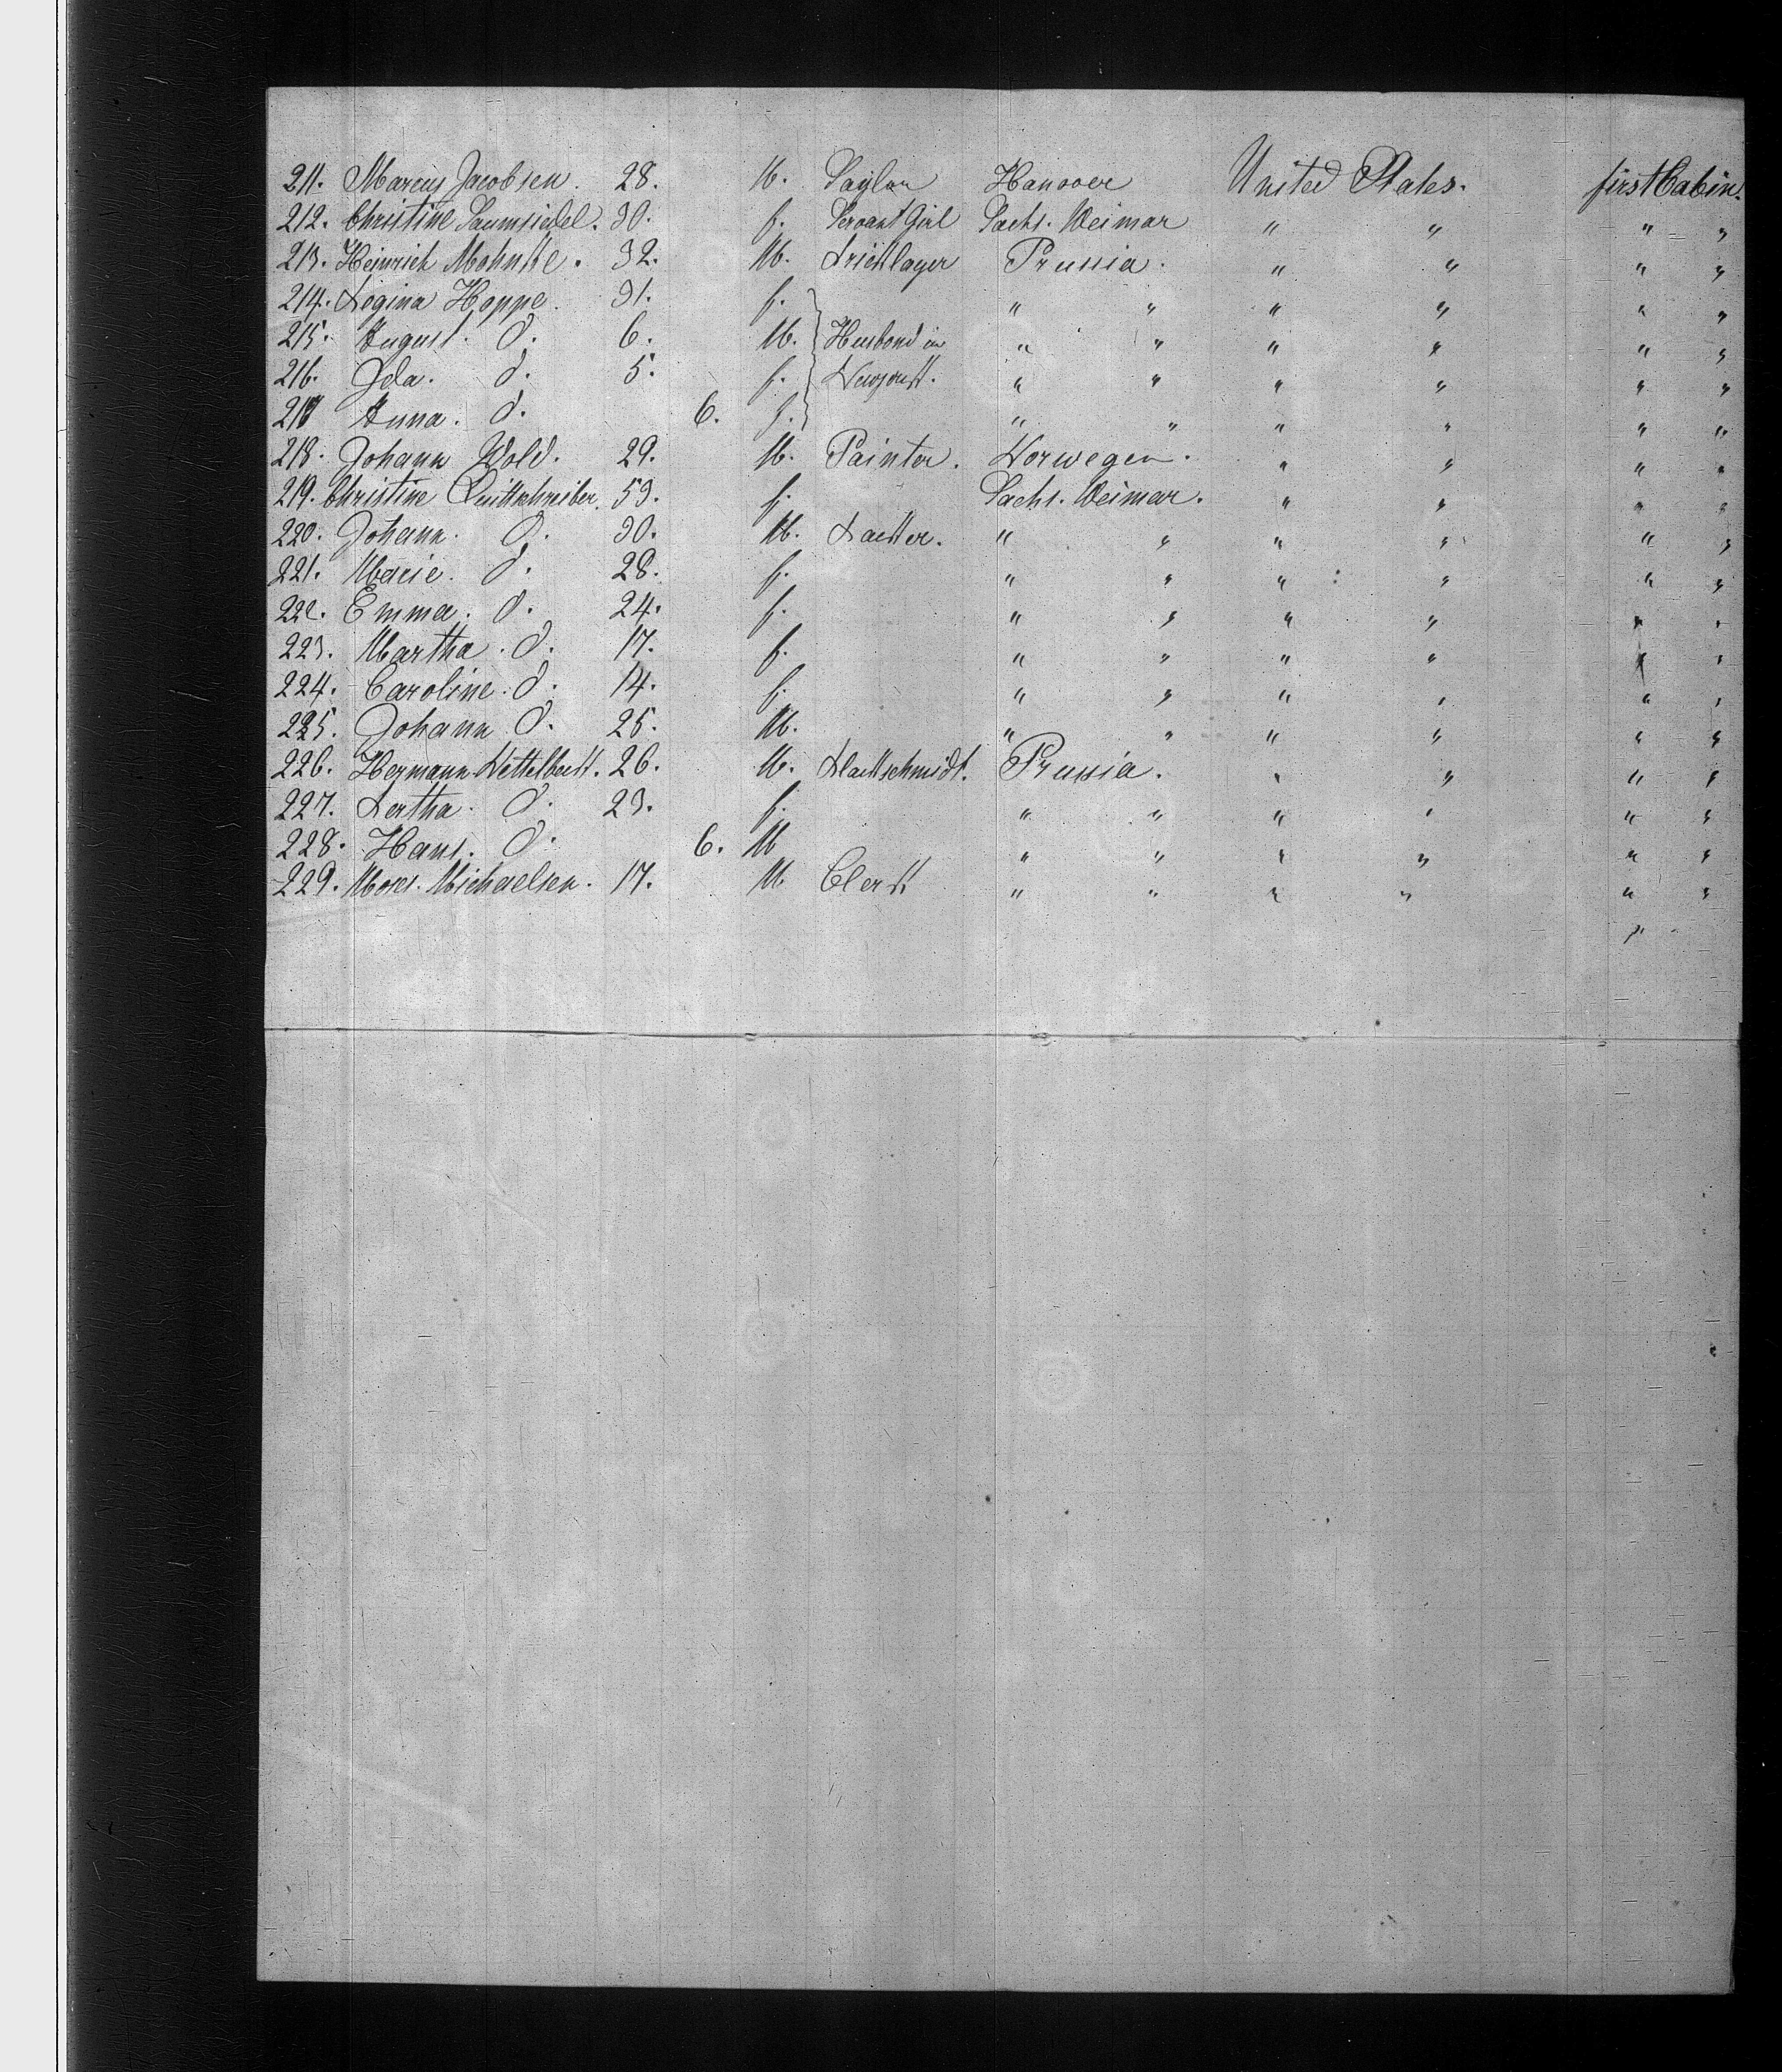 211. Marcus Jacobsen. 28. M. Saylor Hanover United States. first Cabin.
212. Christine Saumsiedel. 30. f. Servant Girl Sachs. Weimar " " " "
213. Heinrich Mohnke. 32. M. Bricklayer Prussia. " " " "
214. Regina Hoppe. 31. f. " " " " " "
215. August. d. 6. M. Husband in " " " " " "
216. Ida. d. 5. f. Newyork. " " " " " "
217 Anna. d. 6. f. " " " " " "
218. Johann Wold. 29. M. Painter. Norwegen. " " " "
219. Christine Quittschreiber. 53. f. Sachs. Weimar. " " " "
220. Johann. d. 30. M. Backer. " " " " " "
221. Marie. d. 28. f. " " " " " "
222. Emma. d. 24. f. " " " " " "
223. Martha. d. 17. f. " " " " " "
224. Caroline. d. 14. f. " " " " " "
225. Johann d. 25. M. " " " " " "
226. Hermann Nettelbeck. 26. M. Blackschmidt. Prussia. " " " "
227. Bertha. d. 23. f. " " " " " "
228. Hans. d. 6. M " " " " " "
229. Moses. Michaelsen. 17. M. Clerk " " " " " "
"